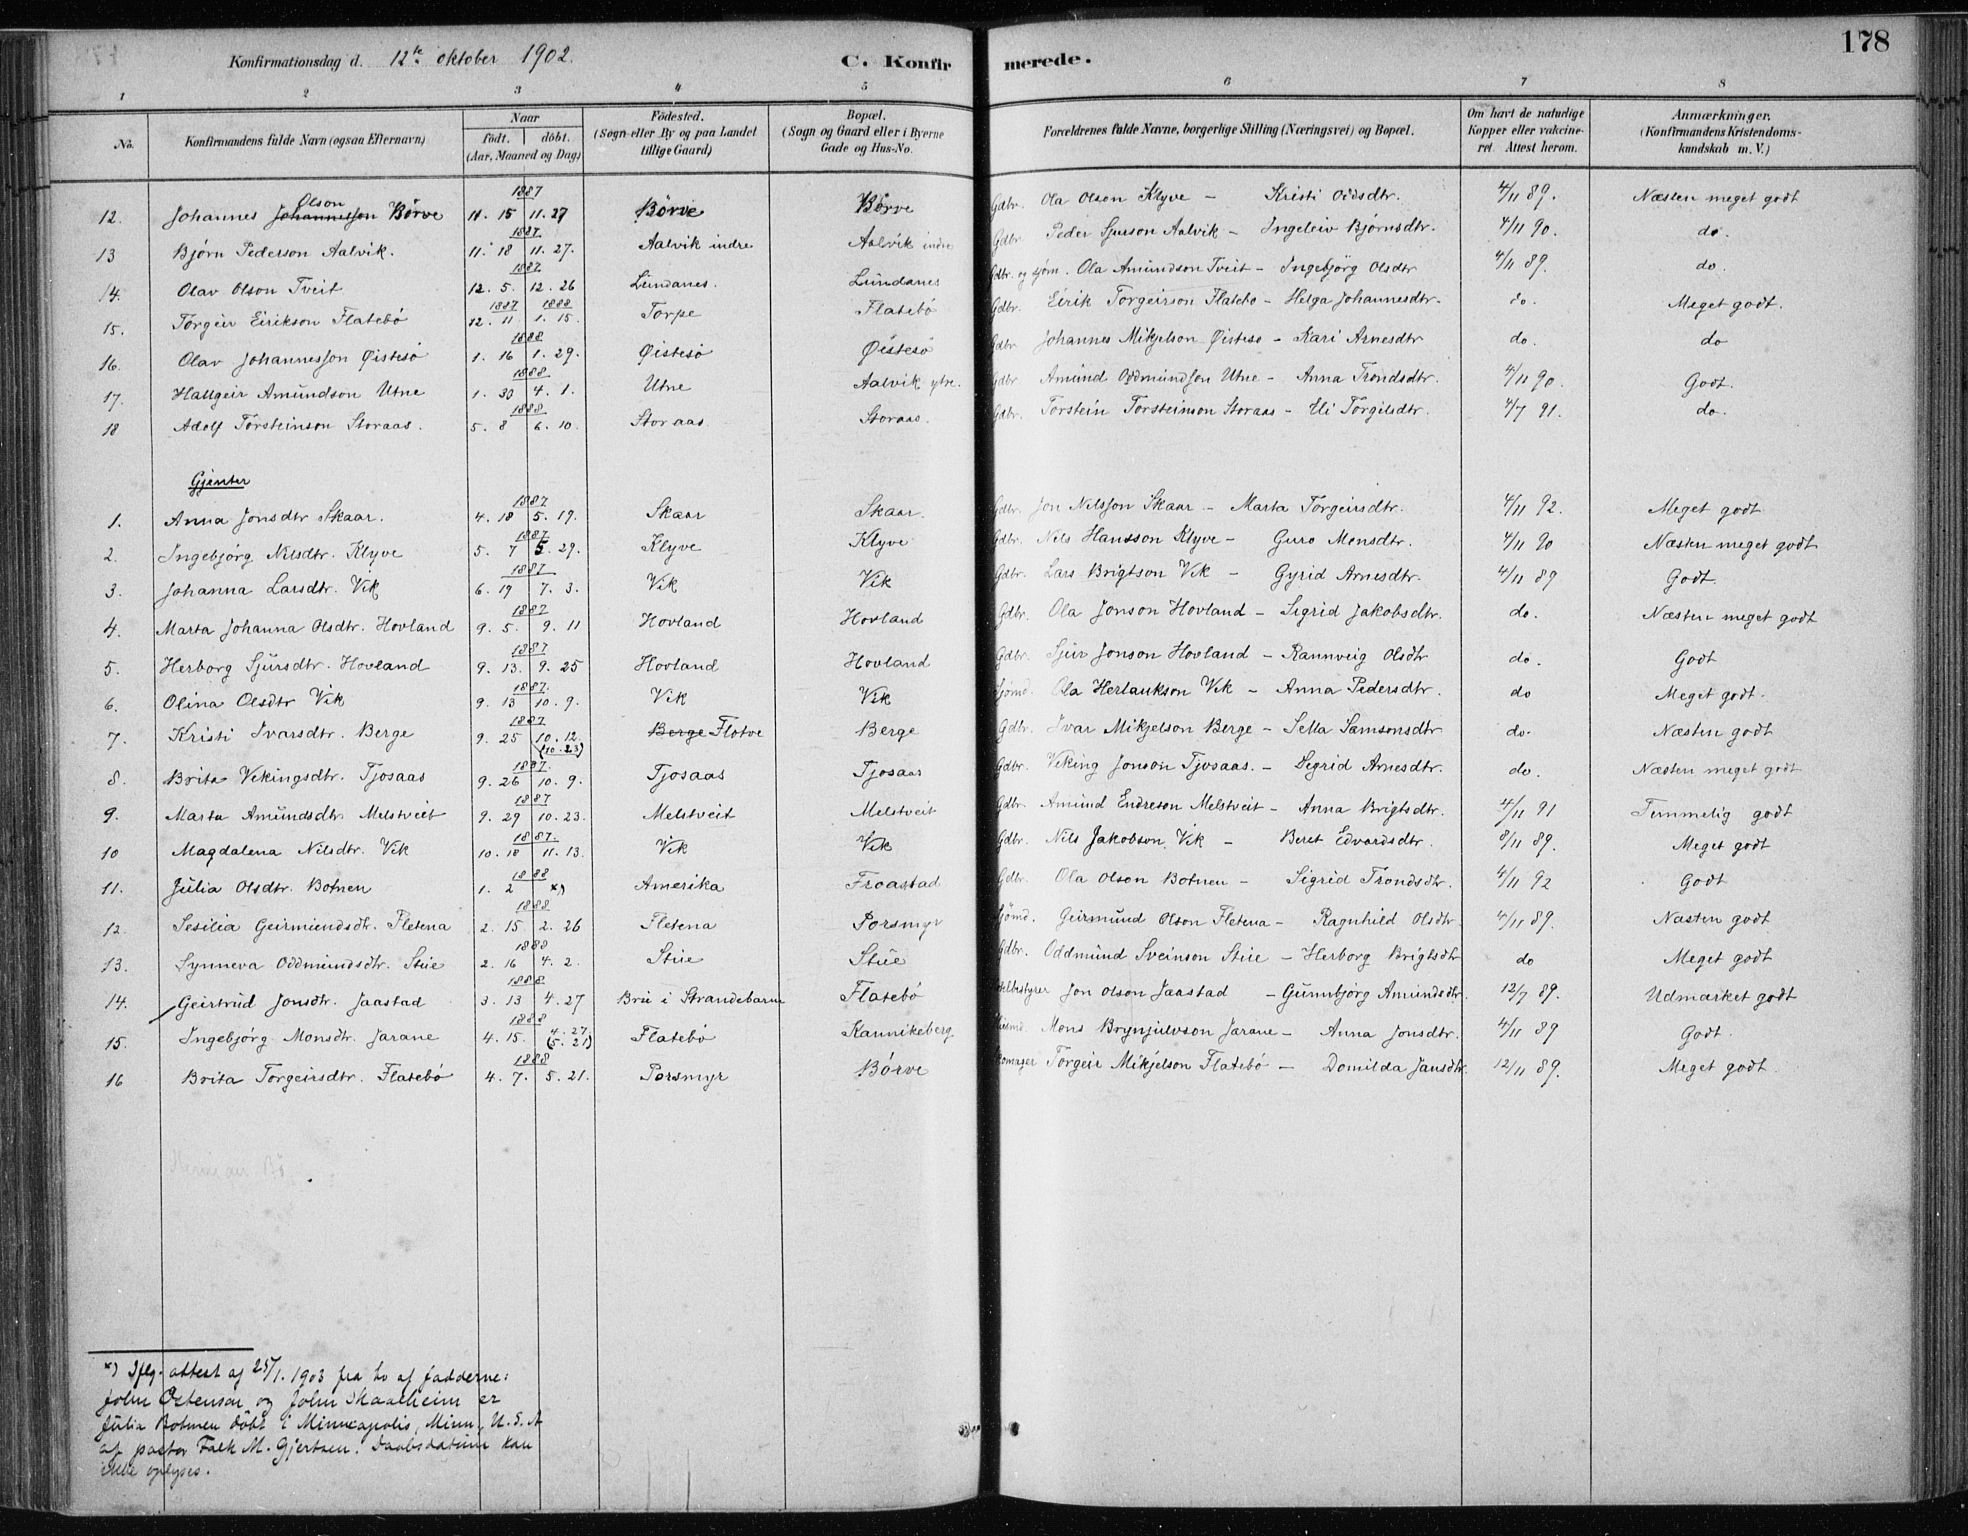 178
Konfirmationsdag d. 12te oktober 1902. C. Konfirmerede.
1 2 3 4 5 6 7 8
No. Konfirmandens fulde Navn (ogsaa Efternavn) Naar født. døbt. (Aar, Maaned og Dag) Fødested. (Sogn eller By og paa Landet tillige Gaard) Bopæl. (Sogn og Gaard eller i Byerne Gade og Hus-No. Forældrenes fulde Navne, borgerlige Stilling (Næringsvei) og Bopæl. Om havt de naturlige Kopper eller vakcineret. Attest herom. Anmærkninger. (Konfirmandens Kristendomskundskab m. V.)
12. Johannes Johannesson Olson Børve 1887 11. 15 11. 27 Børve Børve Gdbr. Ola Olson Klyve – Kristi Oddsdtr. 4/11 89. Næsten meget godt
13 Bjørn Pederson Aalvik. 1887 11. 18 11. 27. Aalvik indre Aalvik indre Gdbr. Peder Sjurson Aalvik – Ingeleiv Bjørnsdtr. 4/11 90. do.
14. Olav Olson Tveit 1887 12. 5. 12. 26 Lundanes. Lundanes Gdbr. og sjøm. Ola Amundson Tveit – Ingebjørg Olsdtr 4/11 89. do.
15. Torgeir Eirikson Flatebø 1887 1888 12. 11 1. 15. Torpe Flatebø Gdbr. Eirik Torgeirson Flatebø – Helga Johannesdtr. do Meget godt.
16. Olav Johannesson Øistesø 1888 1. 16 1. 29. Øistesø Øistesø Gdbr Johannes Mikjelson Øistesø – Kari Arnesdtr do. do
17. Hallgeir Amundson Utne 1888 1. 30 4. 1. Utne Aalvik ytre. Gdbr Amund Oddmundson Utne – Anna Trondsdtr. 4/11 90. Godt.
18 Adolf Torsteinson Storaas. 1888 5. 8 6. 10. Storaas Storaas. Gdbr. Torstein Torsteinson Storaas – Eli Torgilsdtr. 4/7 91. do.
Gjenter
1. Anna Jonsdtr Skaar. 1887 4. 18 5. 19. Skaar Skaar. Gdbr. Jon Nilsson Skaar – Marta Torgeirsdtr. 4/11 92. Meget godt
2. Ingebjørg Nilsdtr. Klyve 1887 5. 7 5. 29. Klyve Klyve Gdbr. Nils Hansson Klyve – Guro Monsdtr. 4/11 90 Næsten meget godt
3. Johanna Larsdtr. Vik 1887 6. 19 7. 3. Vik Vik Gdbr. Lars Brigtson Vik – Gyrid Arnesdtr. 4/11 89 Godt.
4. Marta Johanna Olsdtr. Hovland 1887 9. 5. 9. 11 Hovland Hovland Gdbr. Ola Jonson Hovland – Sigrid Jakobsdtr. do. Næsten meget godt
5. Herborg Sjursdtr. Hovland 1887 9. 13. 9. 25 Hovland Hovland Gdbr. Sjur Jonson Hovland – Rannveig Olsdtr do. Godt
6. Olina Olsdtr Vik 1887. 9. 13 10. 9. Vik Vik Sjømd. Ola Herlaukson Vik – Anna Pedersdtr. do Meget godt.
7. Kristi Ivarsdtr. Berge 1887 9. 25 10. 12. (10. 23) Berge Flotve Berge Gdbr. Ivar Mikjelson Berge – Sella Samsonsdtr do. Næsten godt
8. Brita Vikingsdtr. Tjosaas 1887. 9. 26 10. 9. Tjosaas Tjosaas Gdbr. Viking Jonson Tjosaas. – Sigrid Arnesdtr. do. Næsten meget godt
9. Marta Amundsdtr Melstveit 1887 9. 29 10. 23. Melstveit Melstveit Gdbr. Amund Endreson Melstveit – Anna Brigtsdtr. 4/11 91 Temmelig godt
10 Magdalena Nilsdtr. Vik 1887. 10. 18 11. 13. Vik Vik Gdbr. Nils Jakobson Vik – Beret Edvardsdtr. 8/11 89. Meget godt
11. Julia Olsdtr. Botnen 1888 1. 2 x) Amerika Froastad Gdbr. Ola Olson Botnen – Sigrid Trondsdtr. 4/11 92 Godt
12. Sesilia Geirmundsdtr. Fletena 1888 2. 15 2. 26 Fletena Porsmyr Sjømd. Geirmund Olson Fletena – Ragnhild Olsdtr. 4/11 89. Næsten godt
13. Synneva Oddmundsdtr. Stue 1888 2. 16 4. 2. Stue Stue Gdbr. Oddmund Sveinson Stue – Herborg Brigtsdtr do Meget godt
14. Geirtrud Jonsdtr. Jaastad 1888 3. 13 4. 27 Brue i Strandebarm Flatebø Jon Olson Jaastad – Gunnbjørg Amundsdtr. 12/7 89. Udmærket godt
15. Ingebjørg Monsdtr. Jarane 1888 4. 15. 4. 27 (5. 21) Flatebø Kannikeberg Husmd. Mons Brynjulvson Jarane – Anna Jonsdtr. 4/11 89 Godt.
16 Brita Torgeirsdtr. Flatebø 1888 4. 7. 5. 21. Porsmyr Børve Skomager Torgeir Mikjelson Flatebø – Domilda Jansdtr. 12/11 89. Meget godt.
x) Iflg. attest af 25/1. 1903 fra to af fadderne:
John Ostenson og John Skaarheim er
Julia Botnen døbt i Minneapolis, Minn., U. S. A
af pastor Falk M. Gjertsen. Daabsdatum kan
ikke oplyses.